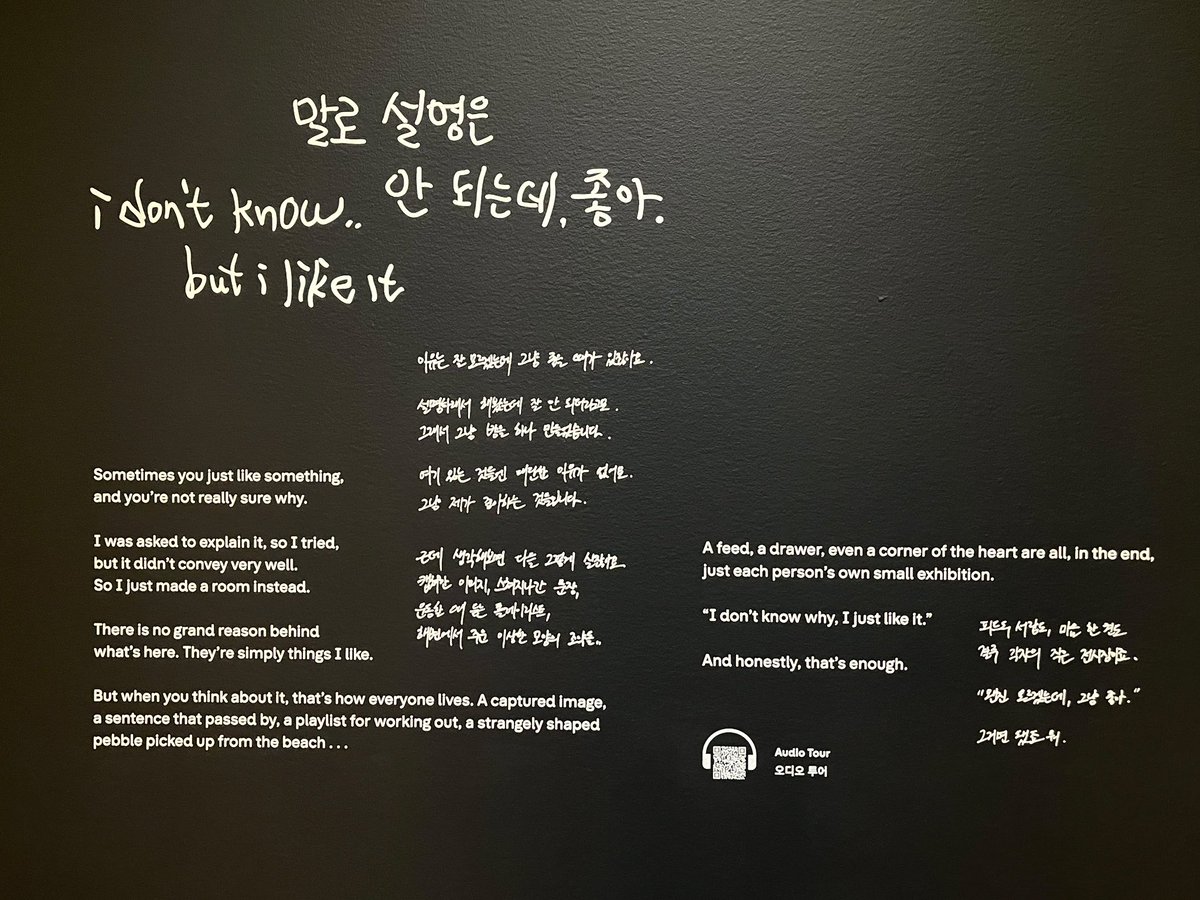 말로 설명은
안 되는데, 좋아.
i don't know..
but i like it
이유는 잘 모르겠는데 그냥 좋은 때가 있잖아요.
설명하래서 해봤는데 잘 안 되더라고요.
그래서 그냥 방을 하나 만들었습니다.
여기 있는 것들엔 대단한 이유가 없어요.
그냥 제가 좋아하는 것들입니다.
근데 생각해보면 다들 그렇게 살잖아요.
캡처한 이미지, 스쳐지나간 문장,
운동할 때 듣는 플레이리스트,
해변에서 주운 이상한 모양의 조약돌..
Sometimes you just like something,
and you're not really sure why.
I was asked to explain it, so I tried,
but it didn't convey very well.
So I just made a room instead.
There is no grand reason behind
what's here. They're simply things I like.
But when you think about it, that's how everyone lives. A captured image,
a sentence that passed by, a playlist for working out, a strangely shaped
pebble picked up from the beach . . .
A feed, a drawer, even a corner of the heart are all, in the end,
just each person's own small exhibition.
“I don't know why, I just like it.”
And honestly, that's enough.
피드도 서랍도, 마음 한 켠도
결국 각자의 작은 전시장이죠.
“왠진 모르겠는데, 그냥 좋아.”
그거면 됐죠 뭐.
Audio Tour
오디오 투어